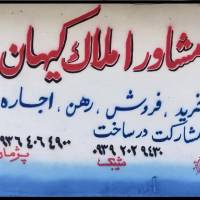 مشاور املاک کیهان
خرید، فروش، رهن، اجاره
مشارکت در ساخت
۰۹۳۹ ۲۰۲ ۹۴۳۰
۰۹۳۶ ۴۰۶ ۴۹۰۰